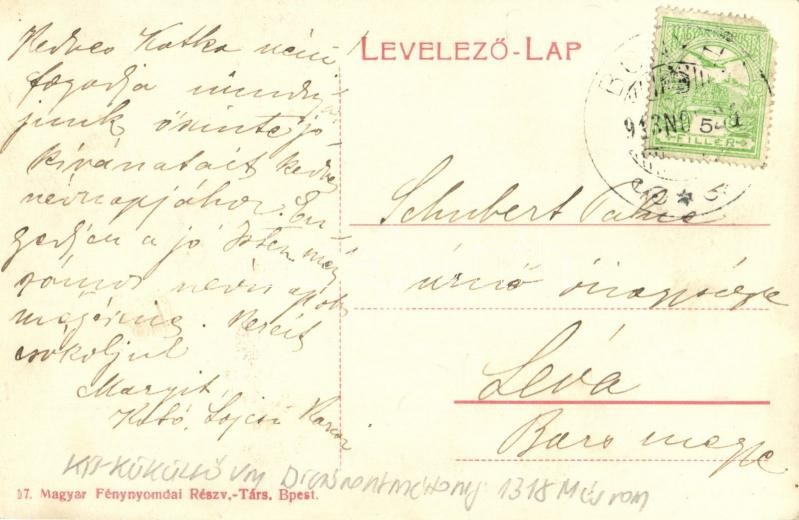 Kedves Katka néni
fogadja mindnyá-
junk őszinte jó
kívánatait kedves
névnapjához. En-
gedjen a jó Isten még
számos névnapot
megérnie. Kezeit
csókoljuk
Margit,
Kató,
LEVELEZŐ-LAP
MAGYAR
913 NO
5
FILLER
Schubert
úrnő őnagysága
Léva
Bars megye
KIS-KÜKÜLLŐ VM Dicsőszentmárton 1318
37. Magyar Fénynyomdai Részv.-Társ. Bpest.